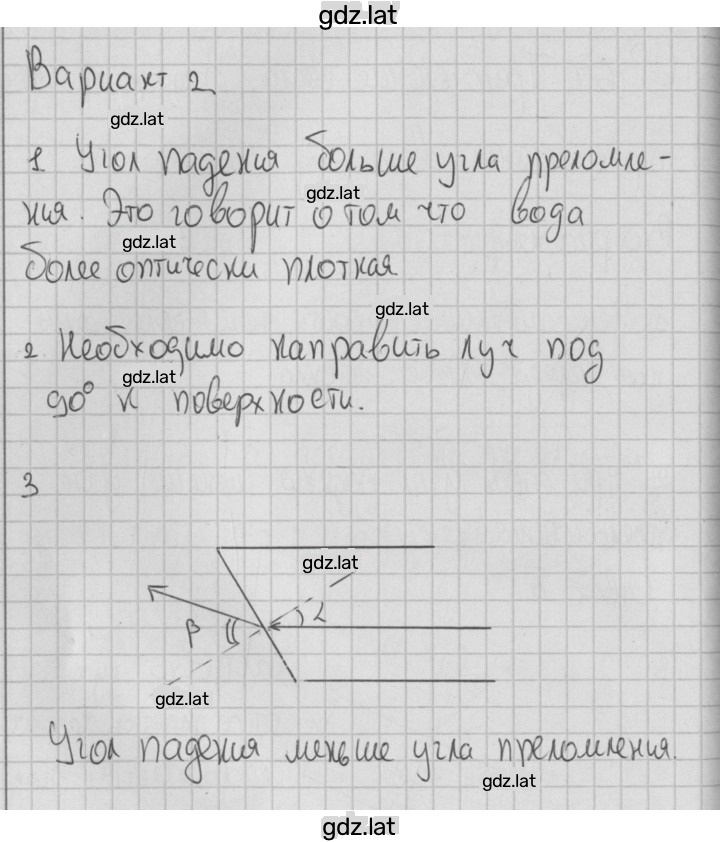 gdz.lat
Вариант 2
gdz.lat
1 Угол падения больше угла преломле-
gdz.lat
ния. Это говорит о том что вода
gdz.lat
более оптически плотная
gdz.lat
2 Необходимо направить луч под
gdz.lat
90° к поверхности.
3
gdz.lat
β α
gdz.lat
Угол падения меньше угла преломления.
gdz.lat
gdz.lat